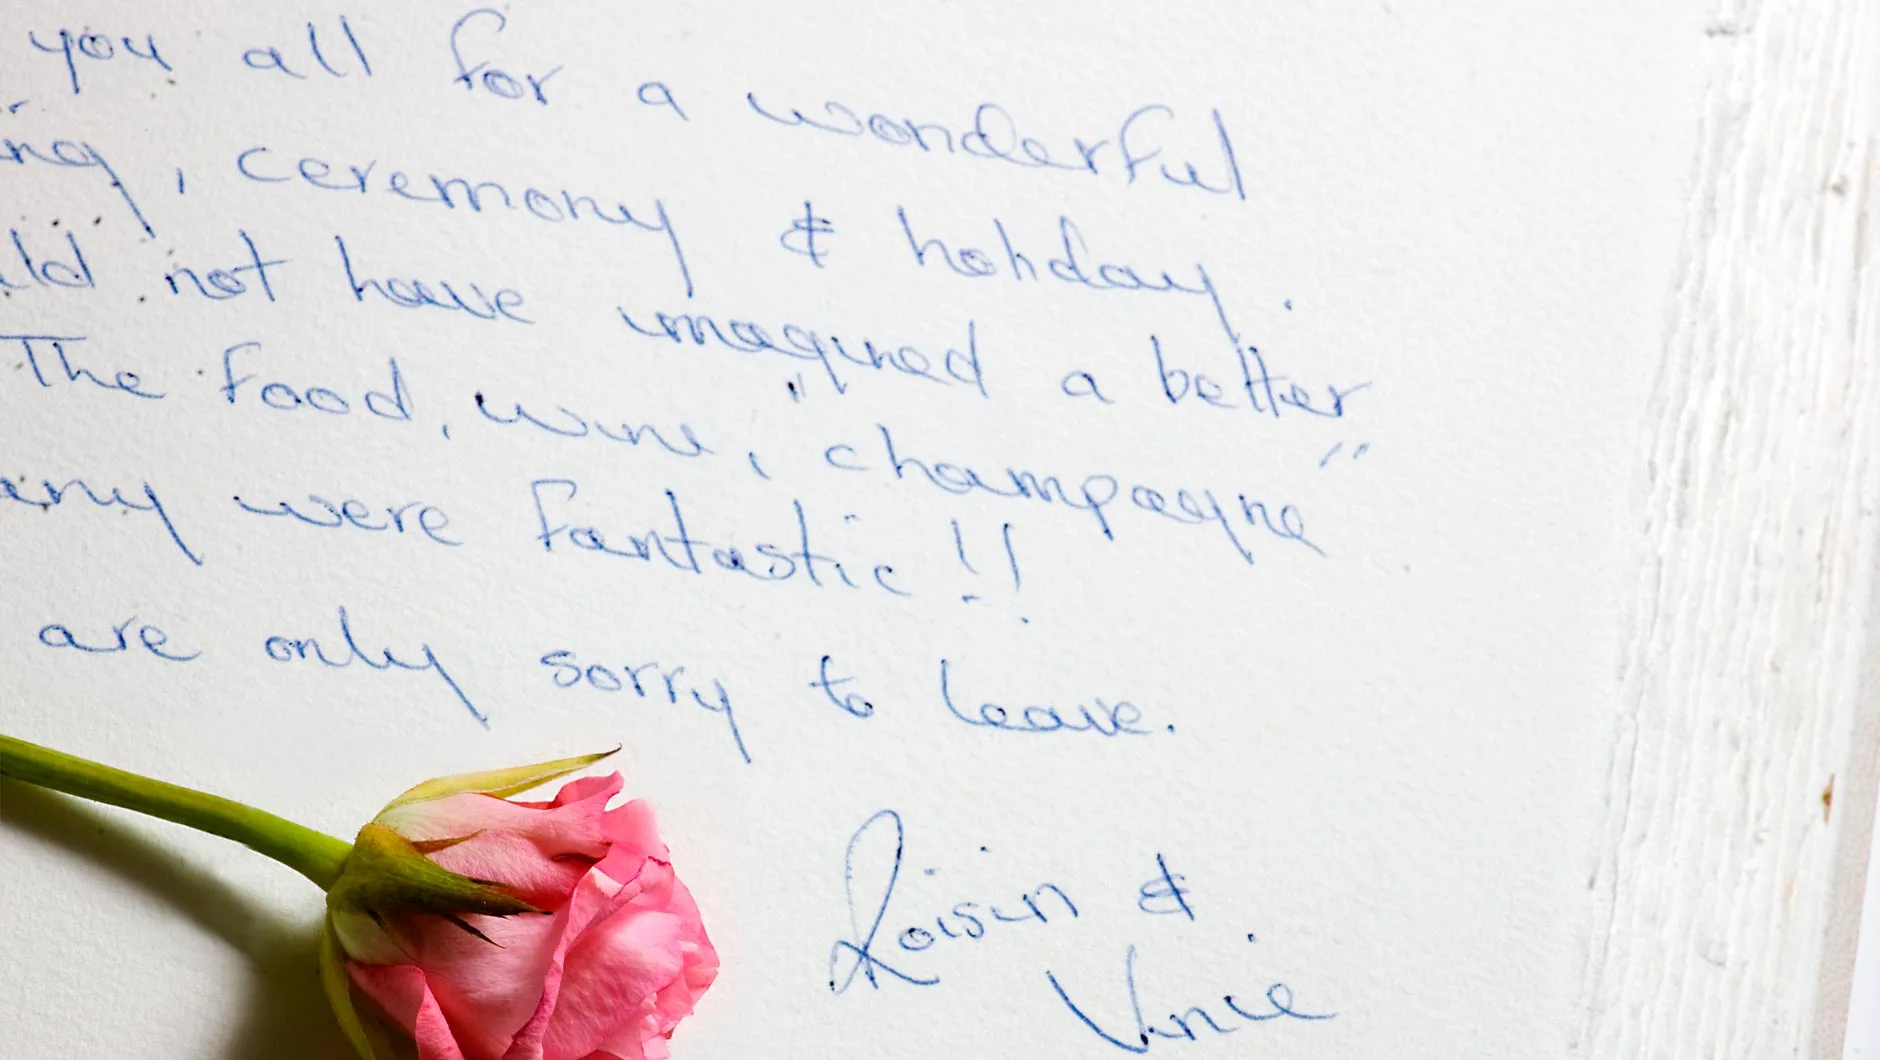 you all for a wonderful
ing, ceremony & holiday.
uld not have imagined a better
The food, wine, "champagne"
any were fantastic!!
are only sorry to leave.
Roisin &
Vinnie